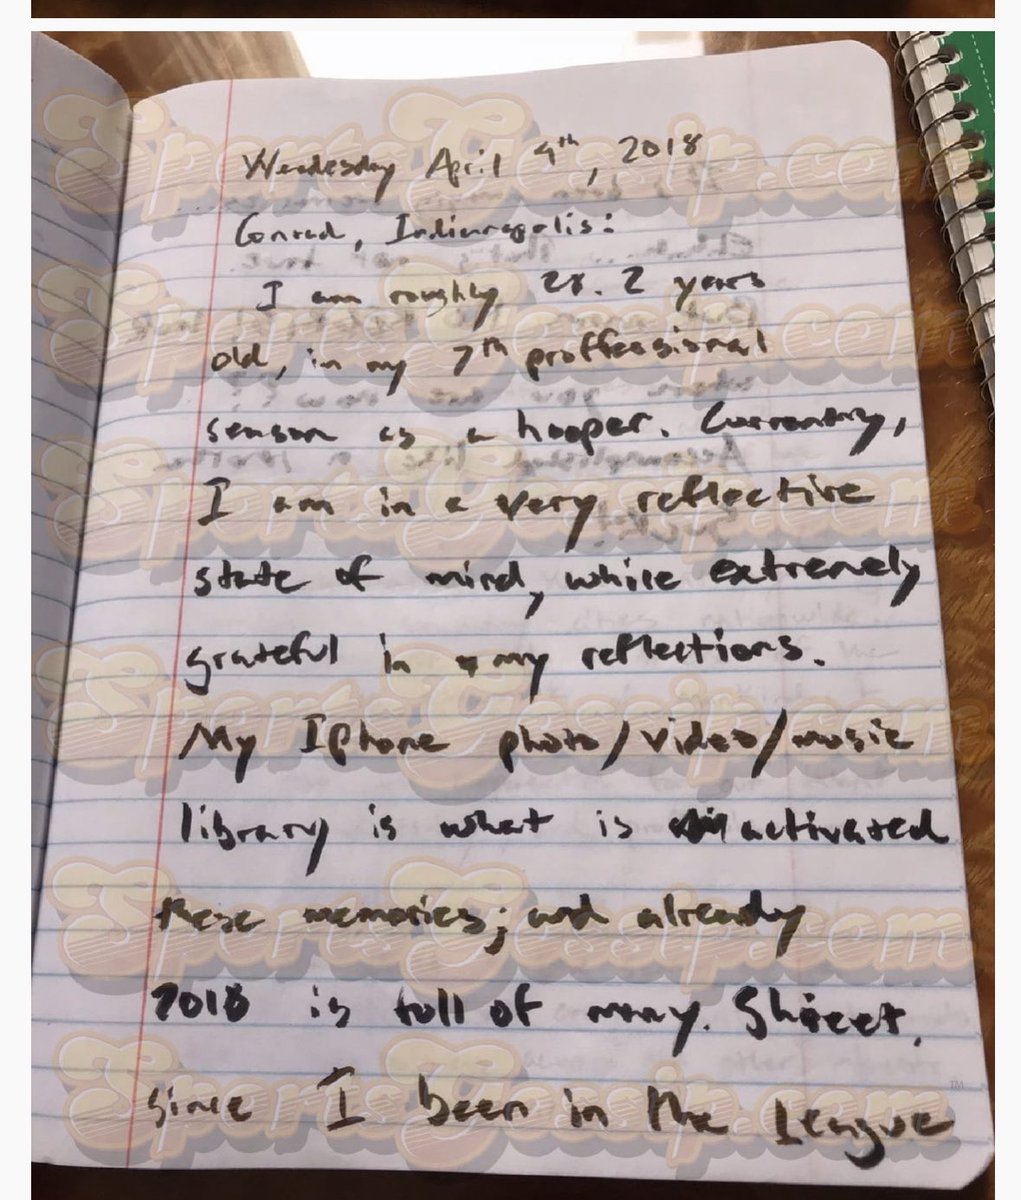 Wednesday April 4th, 2018
Conrad, Indianapolis:
I am roughly 28.2 years
old, in my 7th proffessional
season as a hooper. Currently,
I am in a very reflective
state of mind, while extremely
grateful in my reflections.
My IPhone photo/video/music
library is what is activated
these memories; and already
2018 is full of many. Sheeet,
since I been in the League
SportsGossip.com
TM